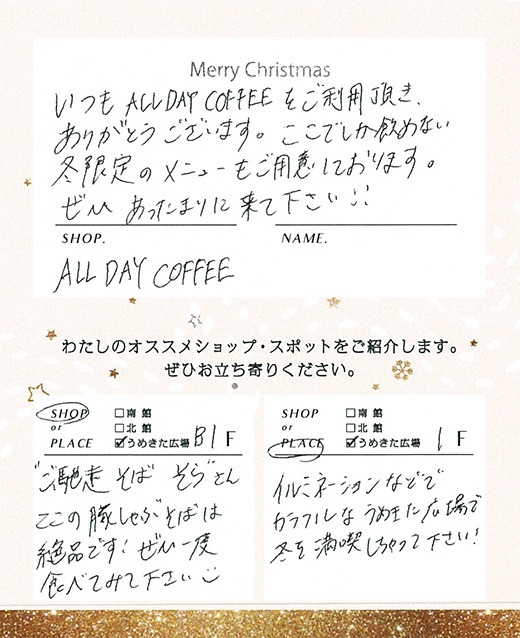 Merry Christmas
いつも ALL DAY COFFEE をご利用頂き、
ありがとうございます。ここでしか飲めない
冬限定のメニューもご用意しております。
ぜひ あったまりに来て下さい!!
SHOP.
NAME.
ALL DAY COFFEE
わたしのオススメショップ・スポットをご紹介します。
ぜひお立ち寄りください。
SHOP
or
PLACE
□南館
□北館
☑うめきた広場 B1F
"ご馳走 そば そら"さん
ここの豚しゃぶそばは
絶品です!ぜひ一度
食べてみて下さい
SHOP
or
PLACE
□南館
□北館
☑うめきた広場 1F
イルミネーションなどで
カラフルな うめきた広場で
冬を満喫しちゃって下さい!